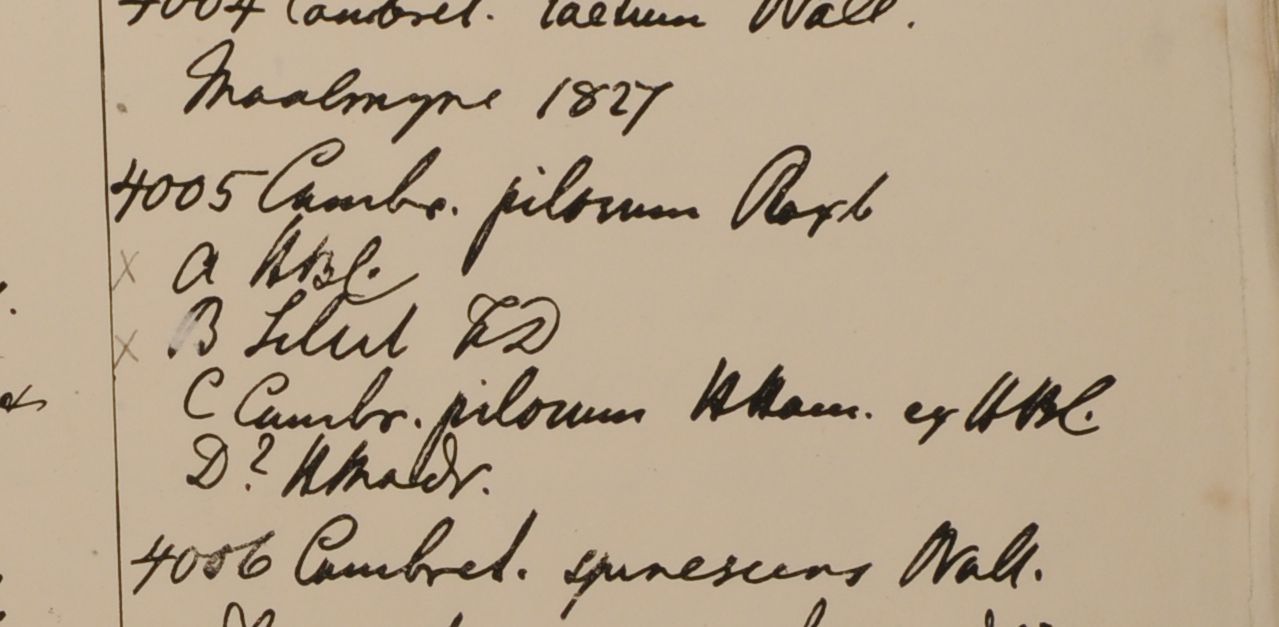 4004 Combret. laetum Wall.
Maalmyne 1827
4005 Combr. pilosum Roxb
x A HBC.
x B Silhet FD
C Combr. pilosum HHam. ex HBC.
D? HMadr.
4006 Combret. spinescens Wall.